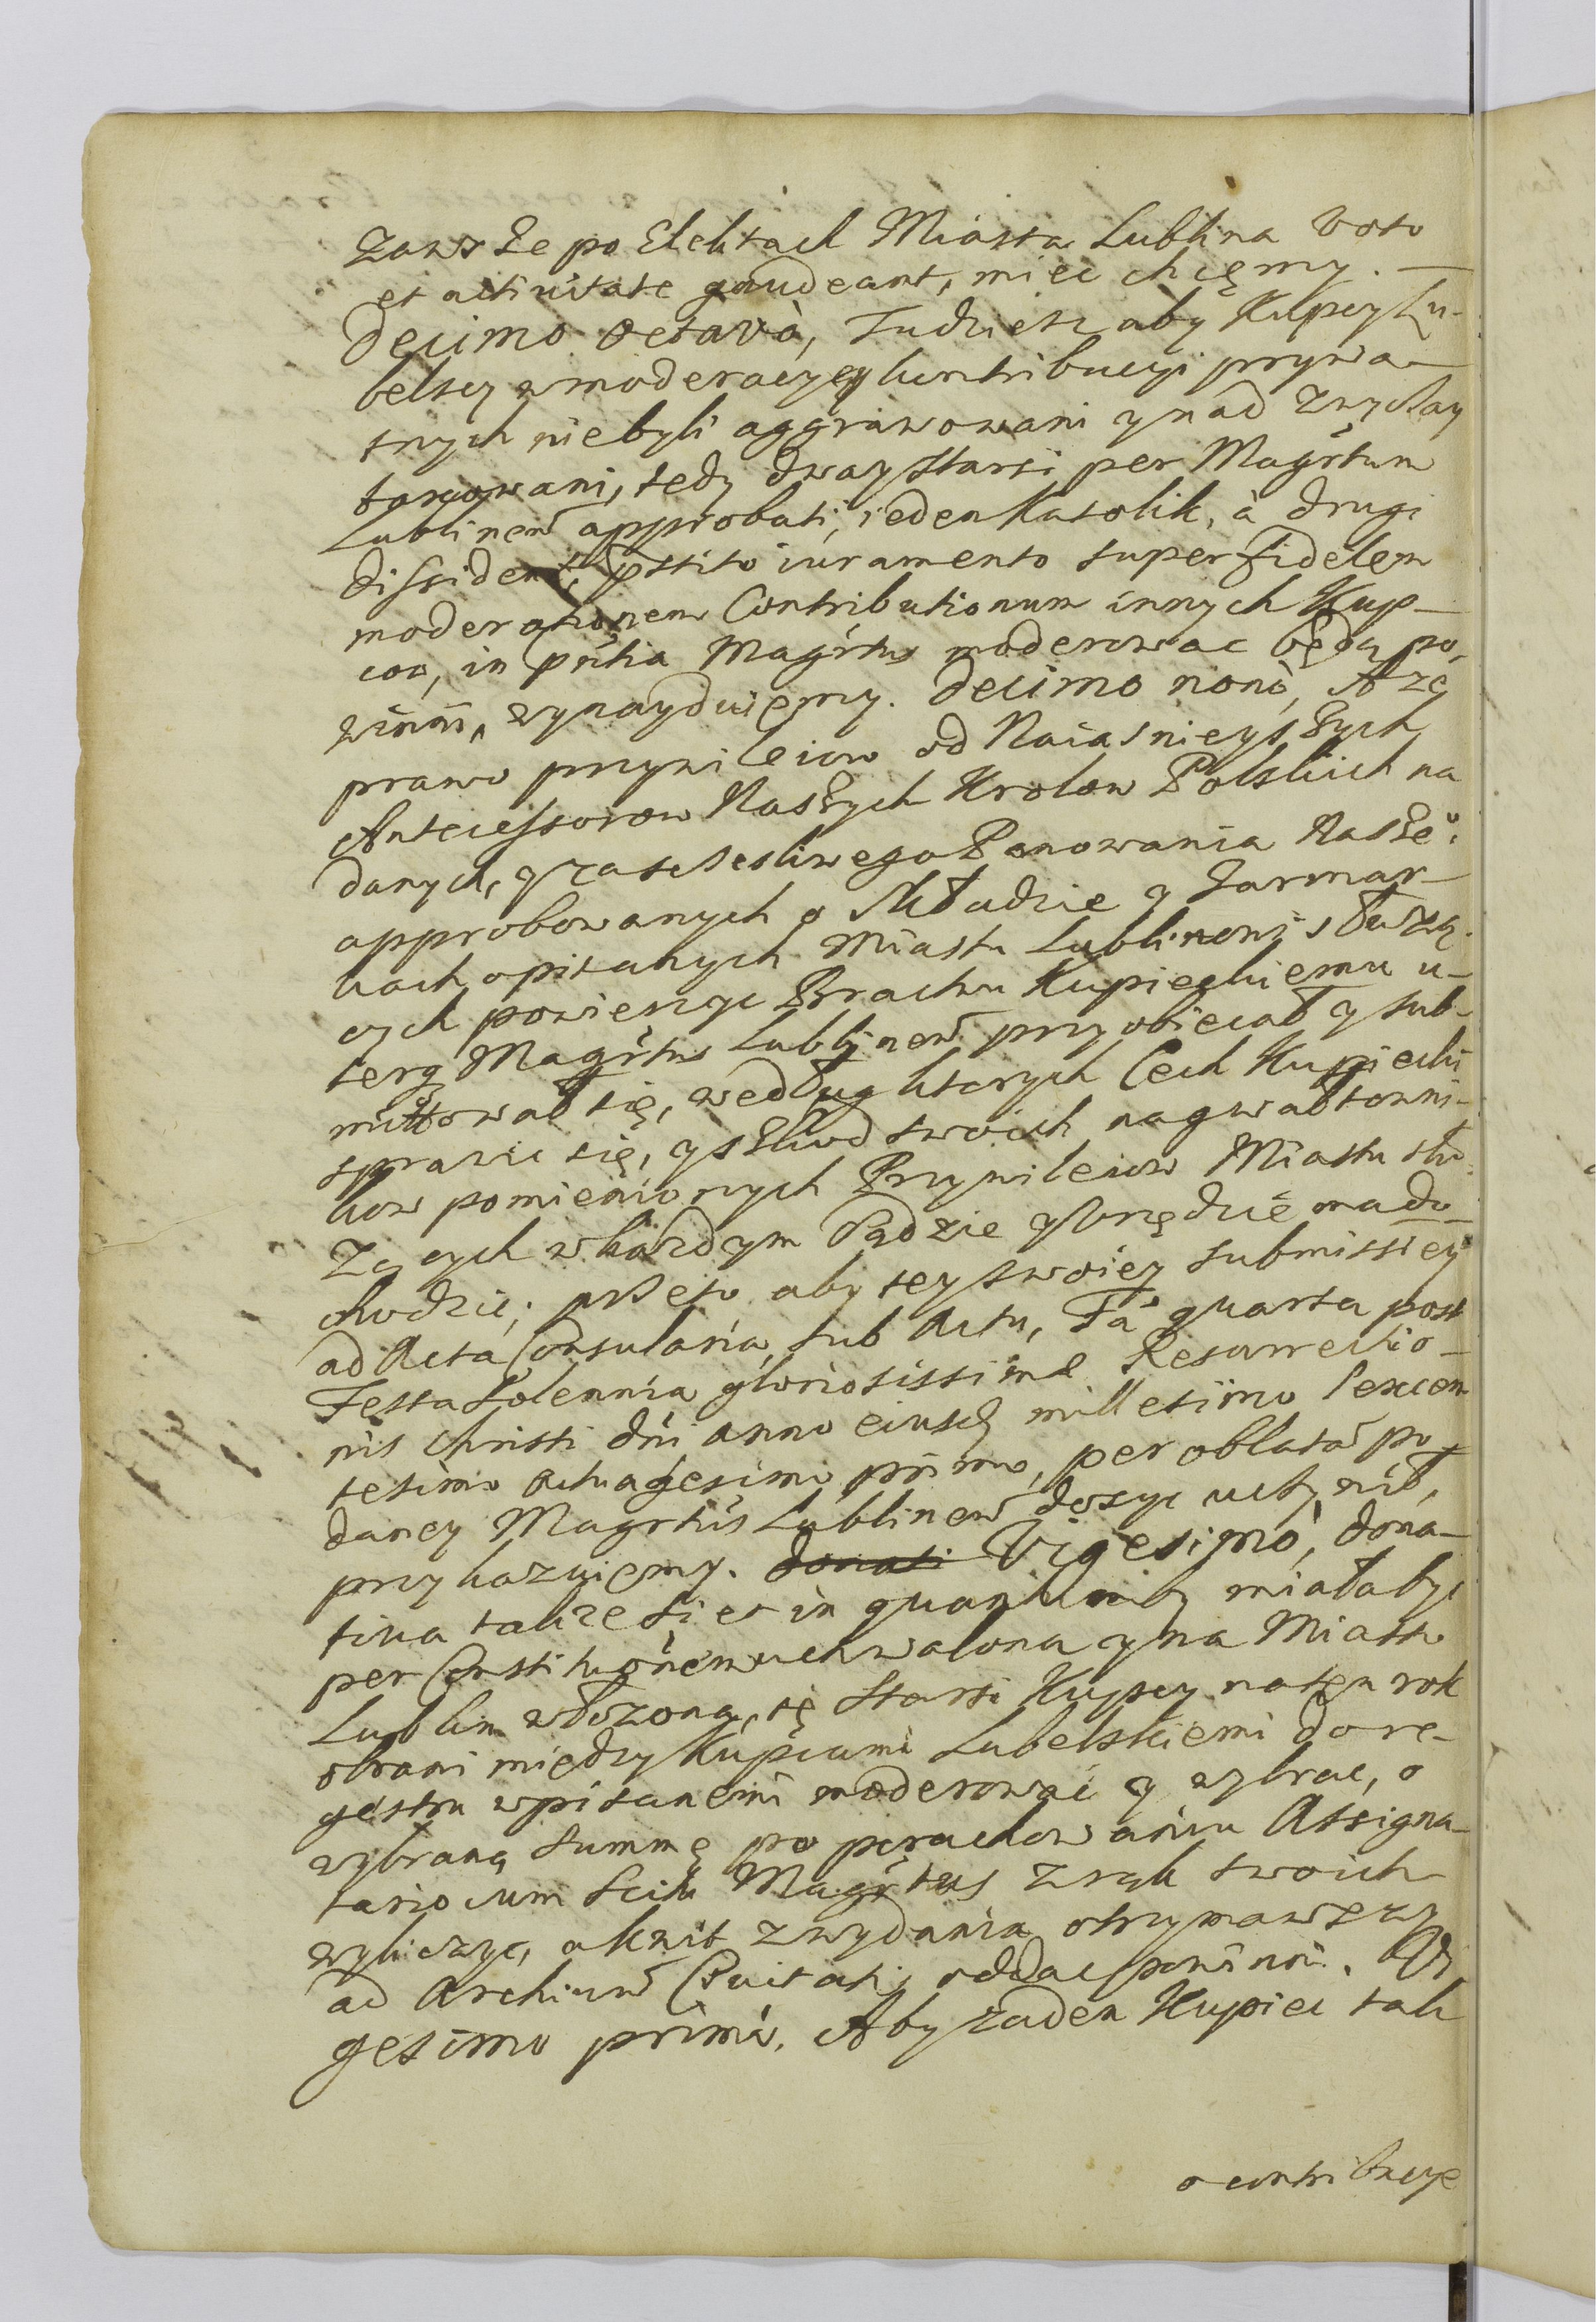 zawsze po Elektach Miasta Lublina voto
et activitate gaudeant, miec chcęmy. —
Decimo octavò, Tudziesz aby Kupcy Lu-
belscy w moderacyey kontribucyi prywa-
tnych niebyli aggrawowani y nad zwyczay
taxowani, tedy dway starsi per Magrtum
Lublinen approbati, ieden Katolik, à drugi
dissident, pstito iuramento super fidelem
moderationem Contributionum innych Kup-
cow, in pntia Magrtus moderowac będą po-
winni, wynayduiemy. Decimo nonò, A ze
prawo przywileiow od Naiasnieyszych
Antecessorow Naszych Krolow Polskich na
danych, y za sczesliwego Panowania Nasze°
approbowanych o Składzie y Jarmar-
kach opisanych Miastu Lublinowi słuzą-
cych powierzyc Bractwu Kupieckiemu u-
terq Magrtus Lublinen przyobiecał y sub-
mittował się, według ktorych Cech Kupiecki
sprawic się, y szkod swoich na gwałtowni-
kow pomienionych Przywileiow Miastu słu-
zących w kazdym Sądzie y Urzędzie ma do-
chodzic; przeto aby tey swoiey submissiey
ad Acta Consularia, sub Actu, Fa quarta post
Festa Solennia gloriosissimæ Resurrectio-
nis Christi dni anno eiusd millesimo Sexcen
tesimo octuagesimo primo, per oblatam po-
daney Magrtus Lublinen dosyc uczynił,
przykazuiemy. donati Vigesimò, dona-
tiva takze si et in quantum by miała byc
per Constitutionem uchwalona y na Miasto
Lublin włozona, tę starsi Kupcy na ten rok
obrani między Kupcami Lubelskiemi do re-
gestru wpisanemi moderowac y wybrac, o
wybraną summę po porachowaniu Assigna-
tario cum scitu Magrtus z rąk swoich
wyliczyc, a kwit z wydania otrzymawszy
ad Archivum Civitatis oddac powinni. Vi-
gesimo primò. Aby zaden Kupiec tak
o contribucye